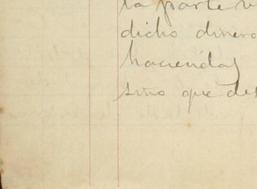 la parte
dicho dinero
haciendas
sino que de